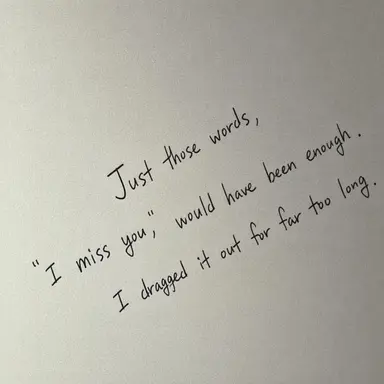 Just those words,
"I miss you," would have been enough.
I dragged it out for far too long.